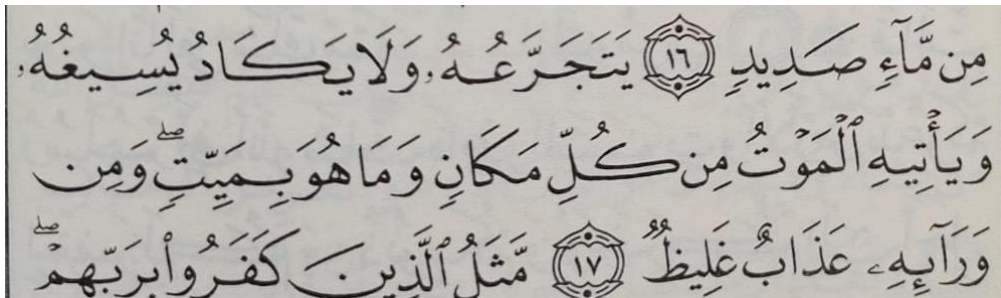 مِن مَّآءٍ صَدِيدٍ ١٦ يَتَجَرَّعُهُۥ وَلَا يَكَادُ يُسِيغُهُۥ
وَيَأْتِيهِ ٱلْمَوْتُ مِن كُلِّ مَكَانٍ وَمَا هُوَ بِمَيِّتٍۖ وَمِن
وَرَآئِهِۦ عَذَابٌ غَلِيظٌ ١٧ مَّثَلُ ٱلَّذِينَ كَفَرُوا۟ بِرَبِّهِمْۖ